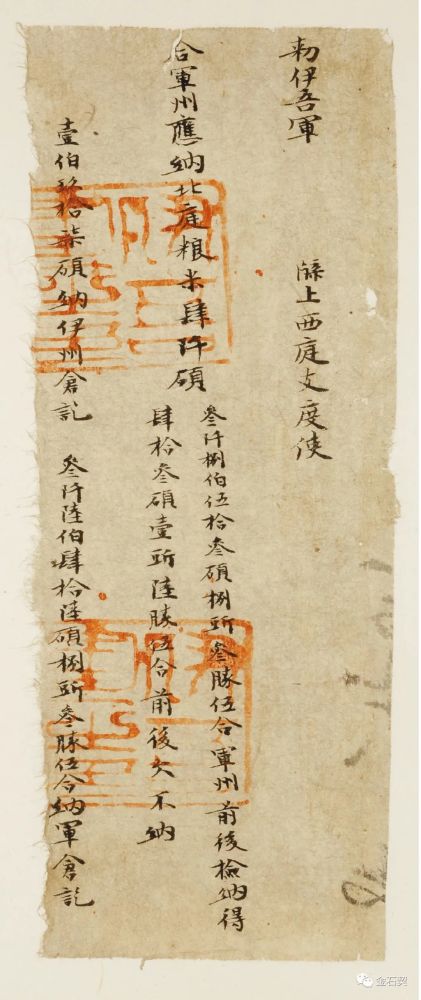 勑伊吾軍 牒上西庭支度使
合軍州應納北庭粮米肆阡碩
叁阡捌伯伍拾叁碩捌㪷叁勝伍合軍州前後撿納得
肆拾叁碩壹㪷陸勝伍合前後欠不納
壹伯玖拾柒碩納伊州倉訖 叁阡陸伯肆拾陸碩捌㪷叁勝伍合納軍倉訖
金石契